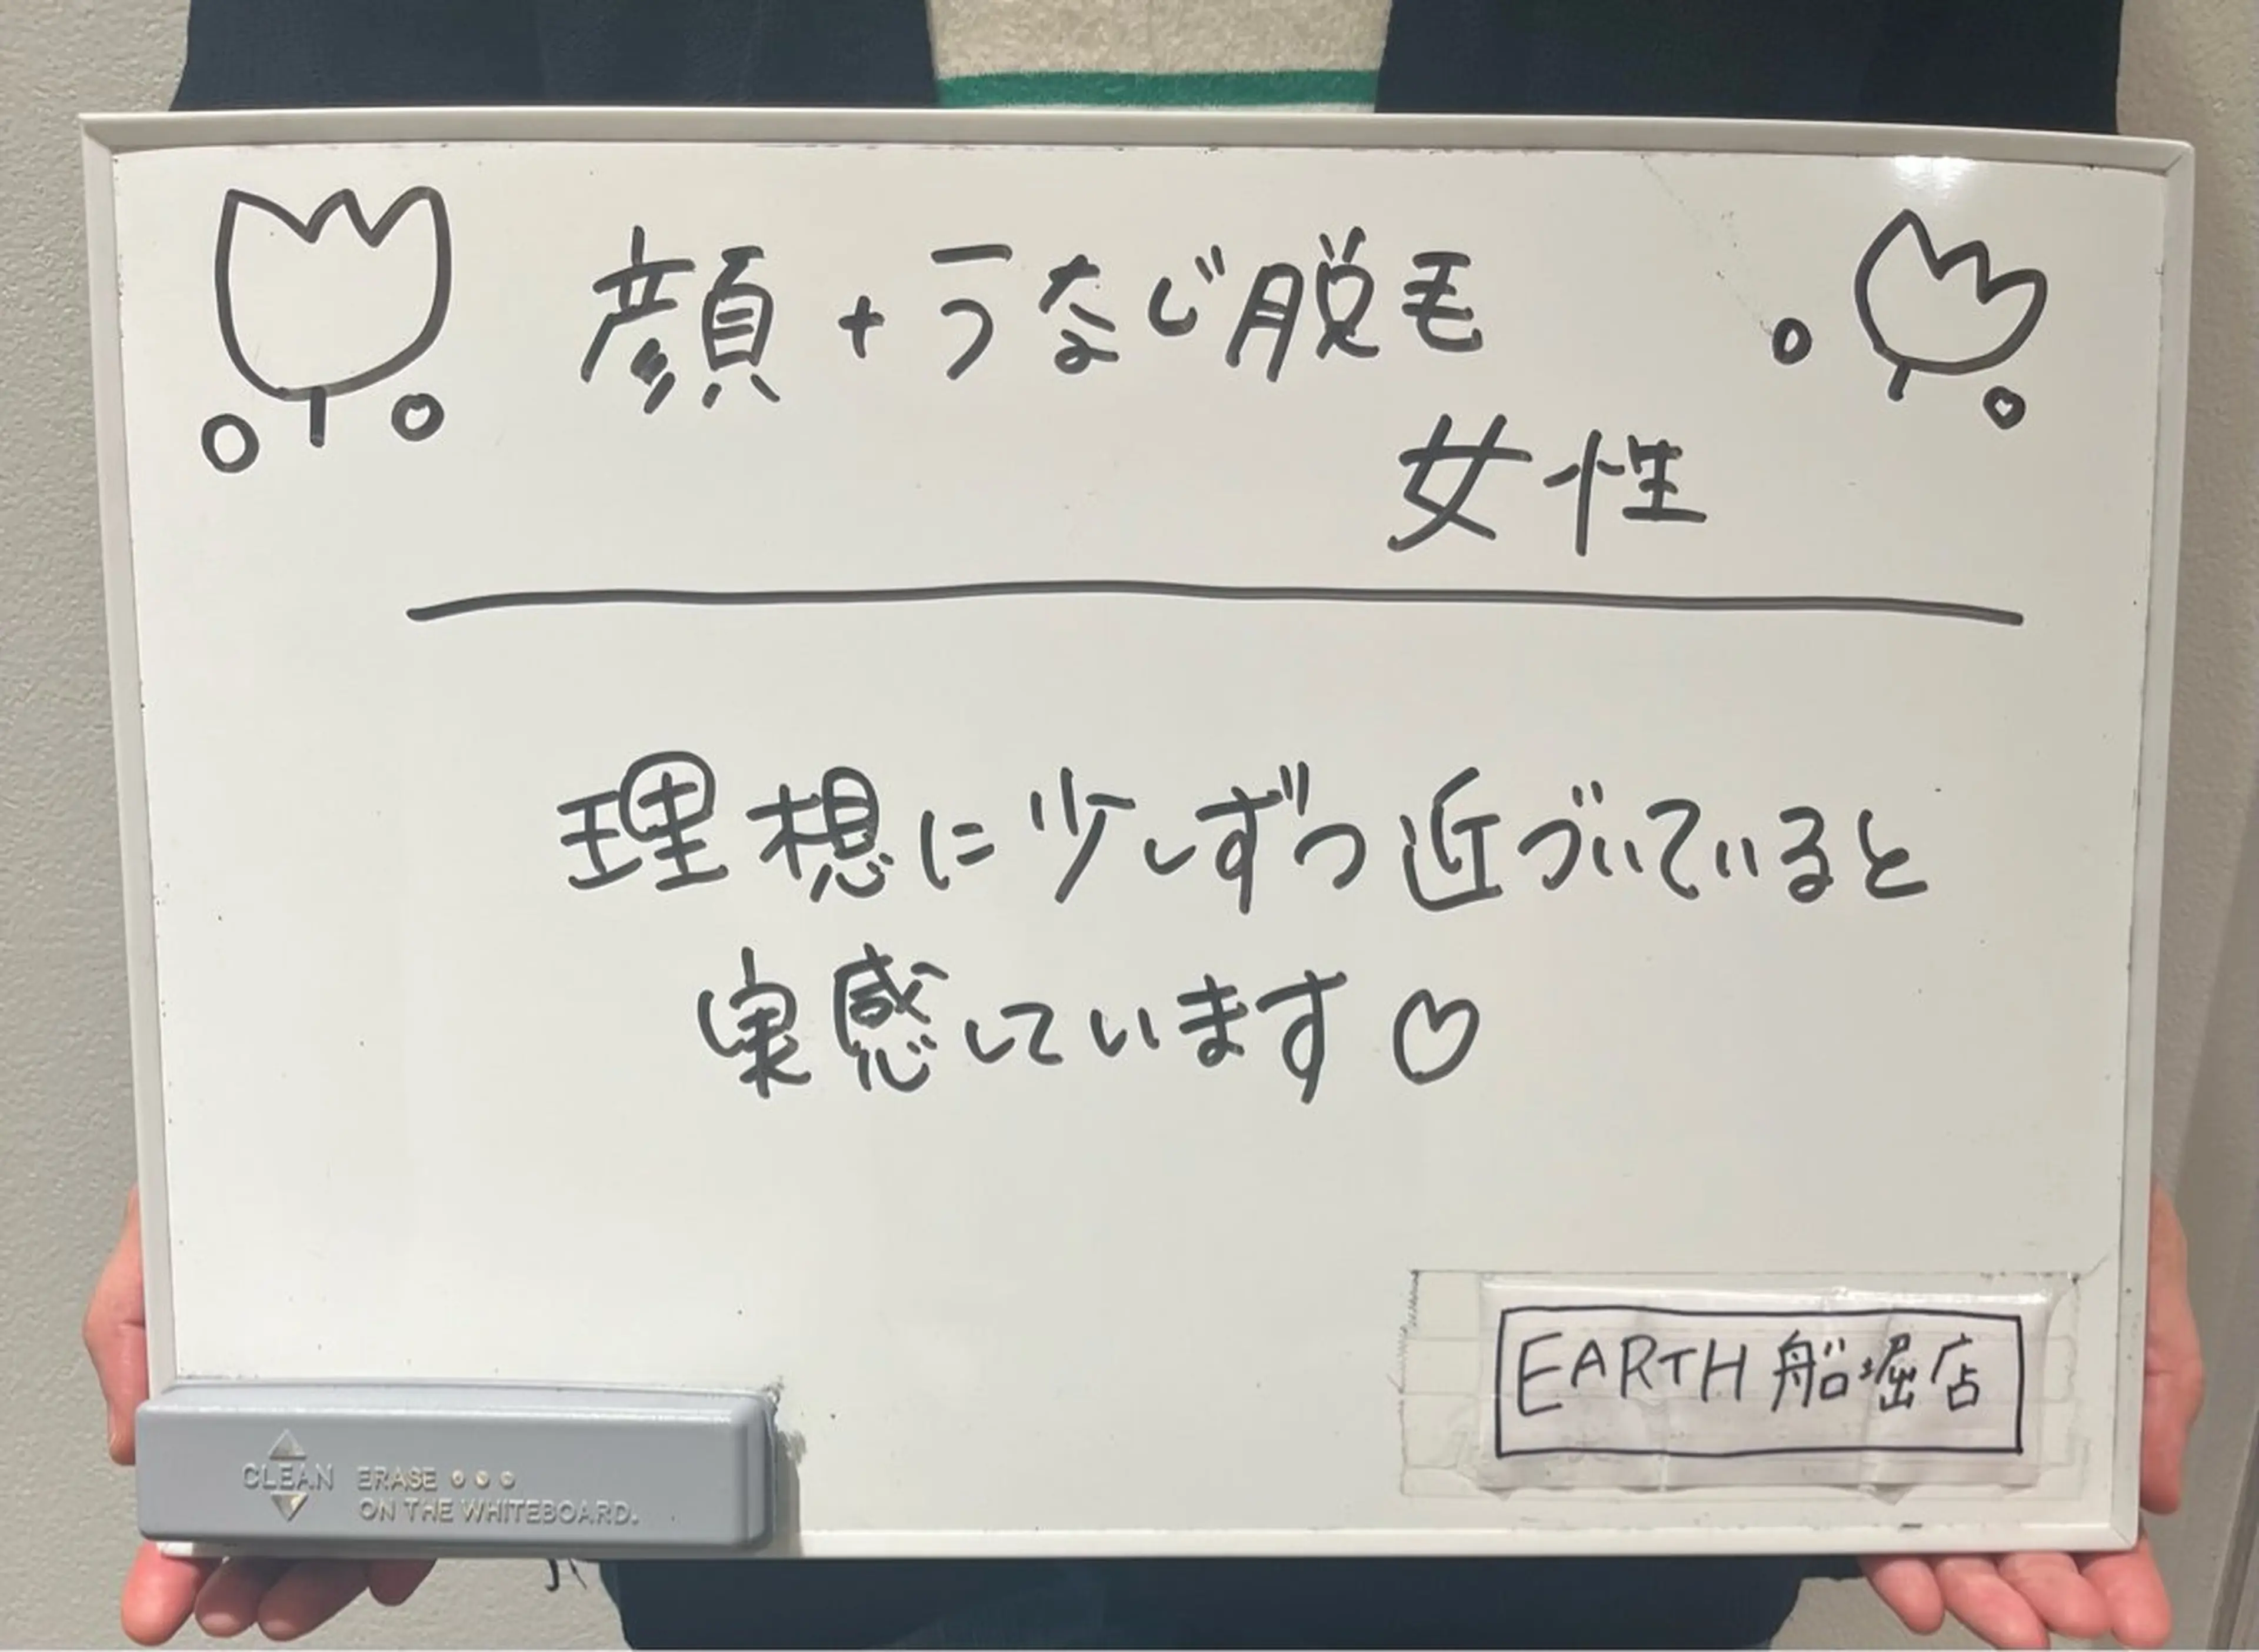 顔+うなじ脱毛
女性
理想に少しずつ近づいていると
実感しています♡
EARTH 船堀店
CLEAN ERASE
ON THE WHITEBOARD.